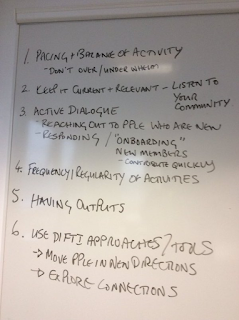 1. PACING + BALANCE OF ACTIVITY
- DON'T OVER/UNDER WHELM
2. KEEP IT CURRENT + RELEVANT - LISTEN TO
YOUR
COMMUNITY
3. ACTIVE DIALOGUE
- REACHING OUT TO PPLE WHO ARE NEW
- RESPONDING / "ONBOARDING"
NEW MEMBERS
- CONTRIBUTE QUICKLY
4. FREQUENCY/REGULARITY OF ACTIVITIES
5. HAVING OUTPUTS
6. USE APPROACHES/TOOLS
→ MOVE PPLE IN NEW DIRECTIONS
→ EXPLORE CONNECTIONS